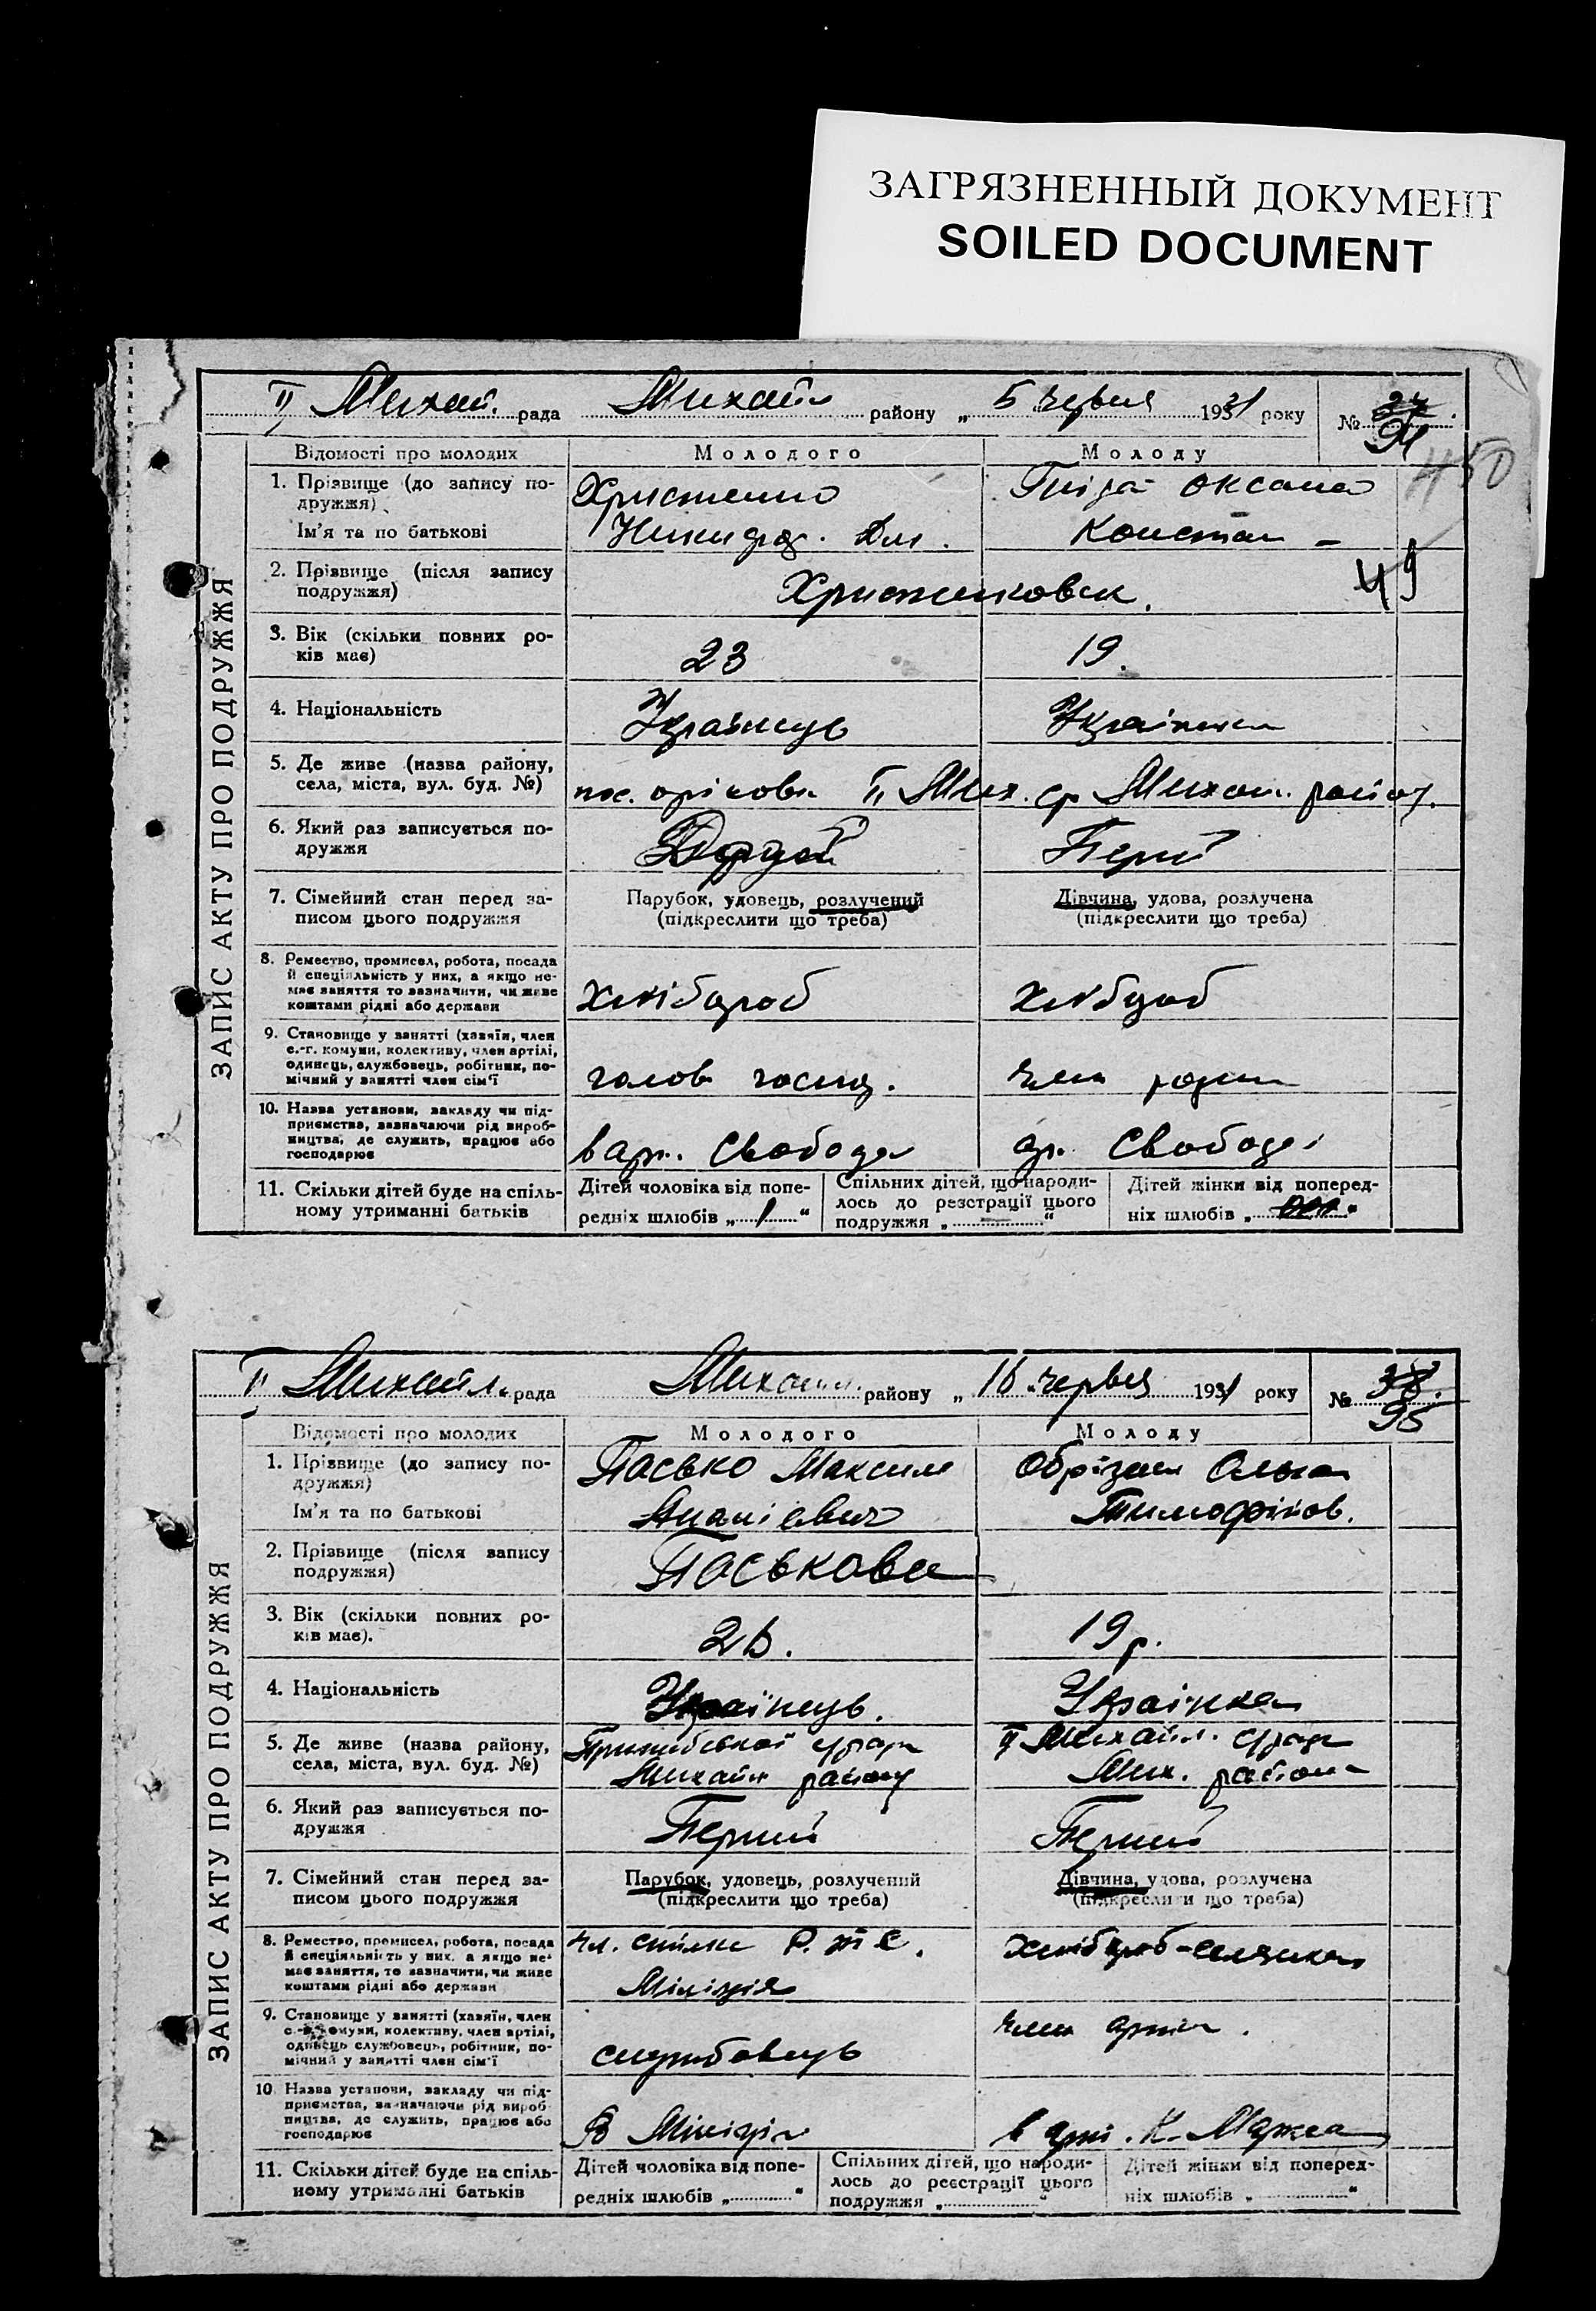 ЗАГРЯЗНЕННЫЙ ДОКУМЕНТ
SOILED DOCUMENT
ІІ Михай. рада Михайл району „ 5 червня 1931 року №
94
450
49
ЗАПИС АКТУ ПРО ПОДРУЖЖЯ
Відомості про молодих Молодого Молоду
1. Прізвище (до запису по-
дружжя)
Ім'я та по батькові
Христенко
Никифор.
Гнізд Оксана
Констан -
2. Прізвище (після запису
подружжя)
3. Вік (скільки повних ро-
ків має)
23 19.
4. Національність
Українець Українка
5. Де живе (назва району,
села, міста, вул. буд. №)
пос. оріхова ІІ Мих. ср Михай. району.
6. Який раз записується по-
дружжя
Другой Перш
7. Сімейний стан перед за-
писом цього подружжя
Парубок, удовець, розлучений
(підкреслити що треба)
Дівчина, удова, розлучена
(підкреслити що треба)
8. Ремество, промисел, робота, посада
й спеціяльність у них, а якщо не-
має заняття то зазначити, чи живе
коштами рідні або держави
хлібороб хлібороб
9. Становище у занятті (хазяїн, член
с.-г. комуни, колективу, член артілі,
одинець, службовець, робітник, по-
мічний у занятті член сім'ї
голов госпд. член родин
10. Назва установи, закладу чи під-
приємства, зазначаючи рід вироб-
ництва, де служить, працює або
господарює
в арт. Свобода ар. Свобода
11. Скільки дітей буде на спіль-
ному утриманні батьків
Дітей чоловіка від попе-
редніх шлюбів „ 1 “
Спільних дітей, що народи-
лось до реєстрації цього
подружжя „ — “
Дітей жінки від поперед-
ніх шлюбів „ “
ІІ Михайл. рада Михайл. району „ 16 червня 1931 року № 38.
95
ЗАПИС АКТУ ПРО ПОДРУЖЖЯ
Відомості про молодих Молодого Молоду
1. Прізвище (до запису по-
дружжя)
Ім'я та по батькові
Пасько Максим
Ананієвич
Обрізан Ольга
Тимофіїов.
2. Прізвище (після запису
подружжя)
Паськова
3. Вік (скільки повних ро-
ків має).
26. 19 р.
4. Національність
Українець. Українка
5. Де живе (назва району,
села, міста, вул. буд. №)
Пришибської с/ради
Михайл району
ІІ Михайл. с/рада
Мих. району
6. Який раз записується по-
дружжя
Перший Перший
7. Сімейний стан перед за-
писом цього подружжя
Парубок, удовець, розлучений
(підкреслити що треба)
Дівчина, удова, розлучена
(підкреслити що треба)
8. Ремество, промисел, робота, посада
й спеціяльність у них, а якщо не-
має заняття, то зазначити, чи живе
коштами рідні або держави
Чл. спілки Р. т С.
Міліція
хлібороб-селянка
9. Становище у занятті (хазяїн, член
с.-г. комуни, колективу, член артілі,
одинець службовець, робітник, по-
мічний у занятті член сім'ї
службовець член артіл.
10 Назва установи, закладу чи під-
приємства, зазначаючи рід вироб
ництва, де служить, працює або
господарює
В Міліції в арт. К. Маркса
11. Скільки дітей буде на спіль-
ному утриманні батьків
Дітей чоловіка від попе-
редніх шлюбів „ “
Спільних дітей, що народи-
лось до реєстрації цього
подружжя „ “
Дітей жінки від поперед-
ніх шлюбів „ “